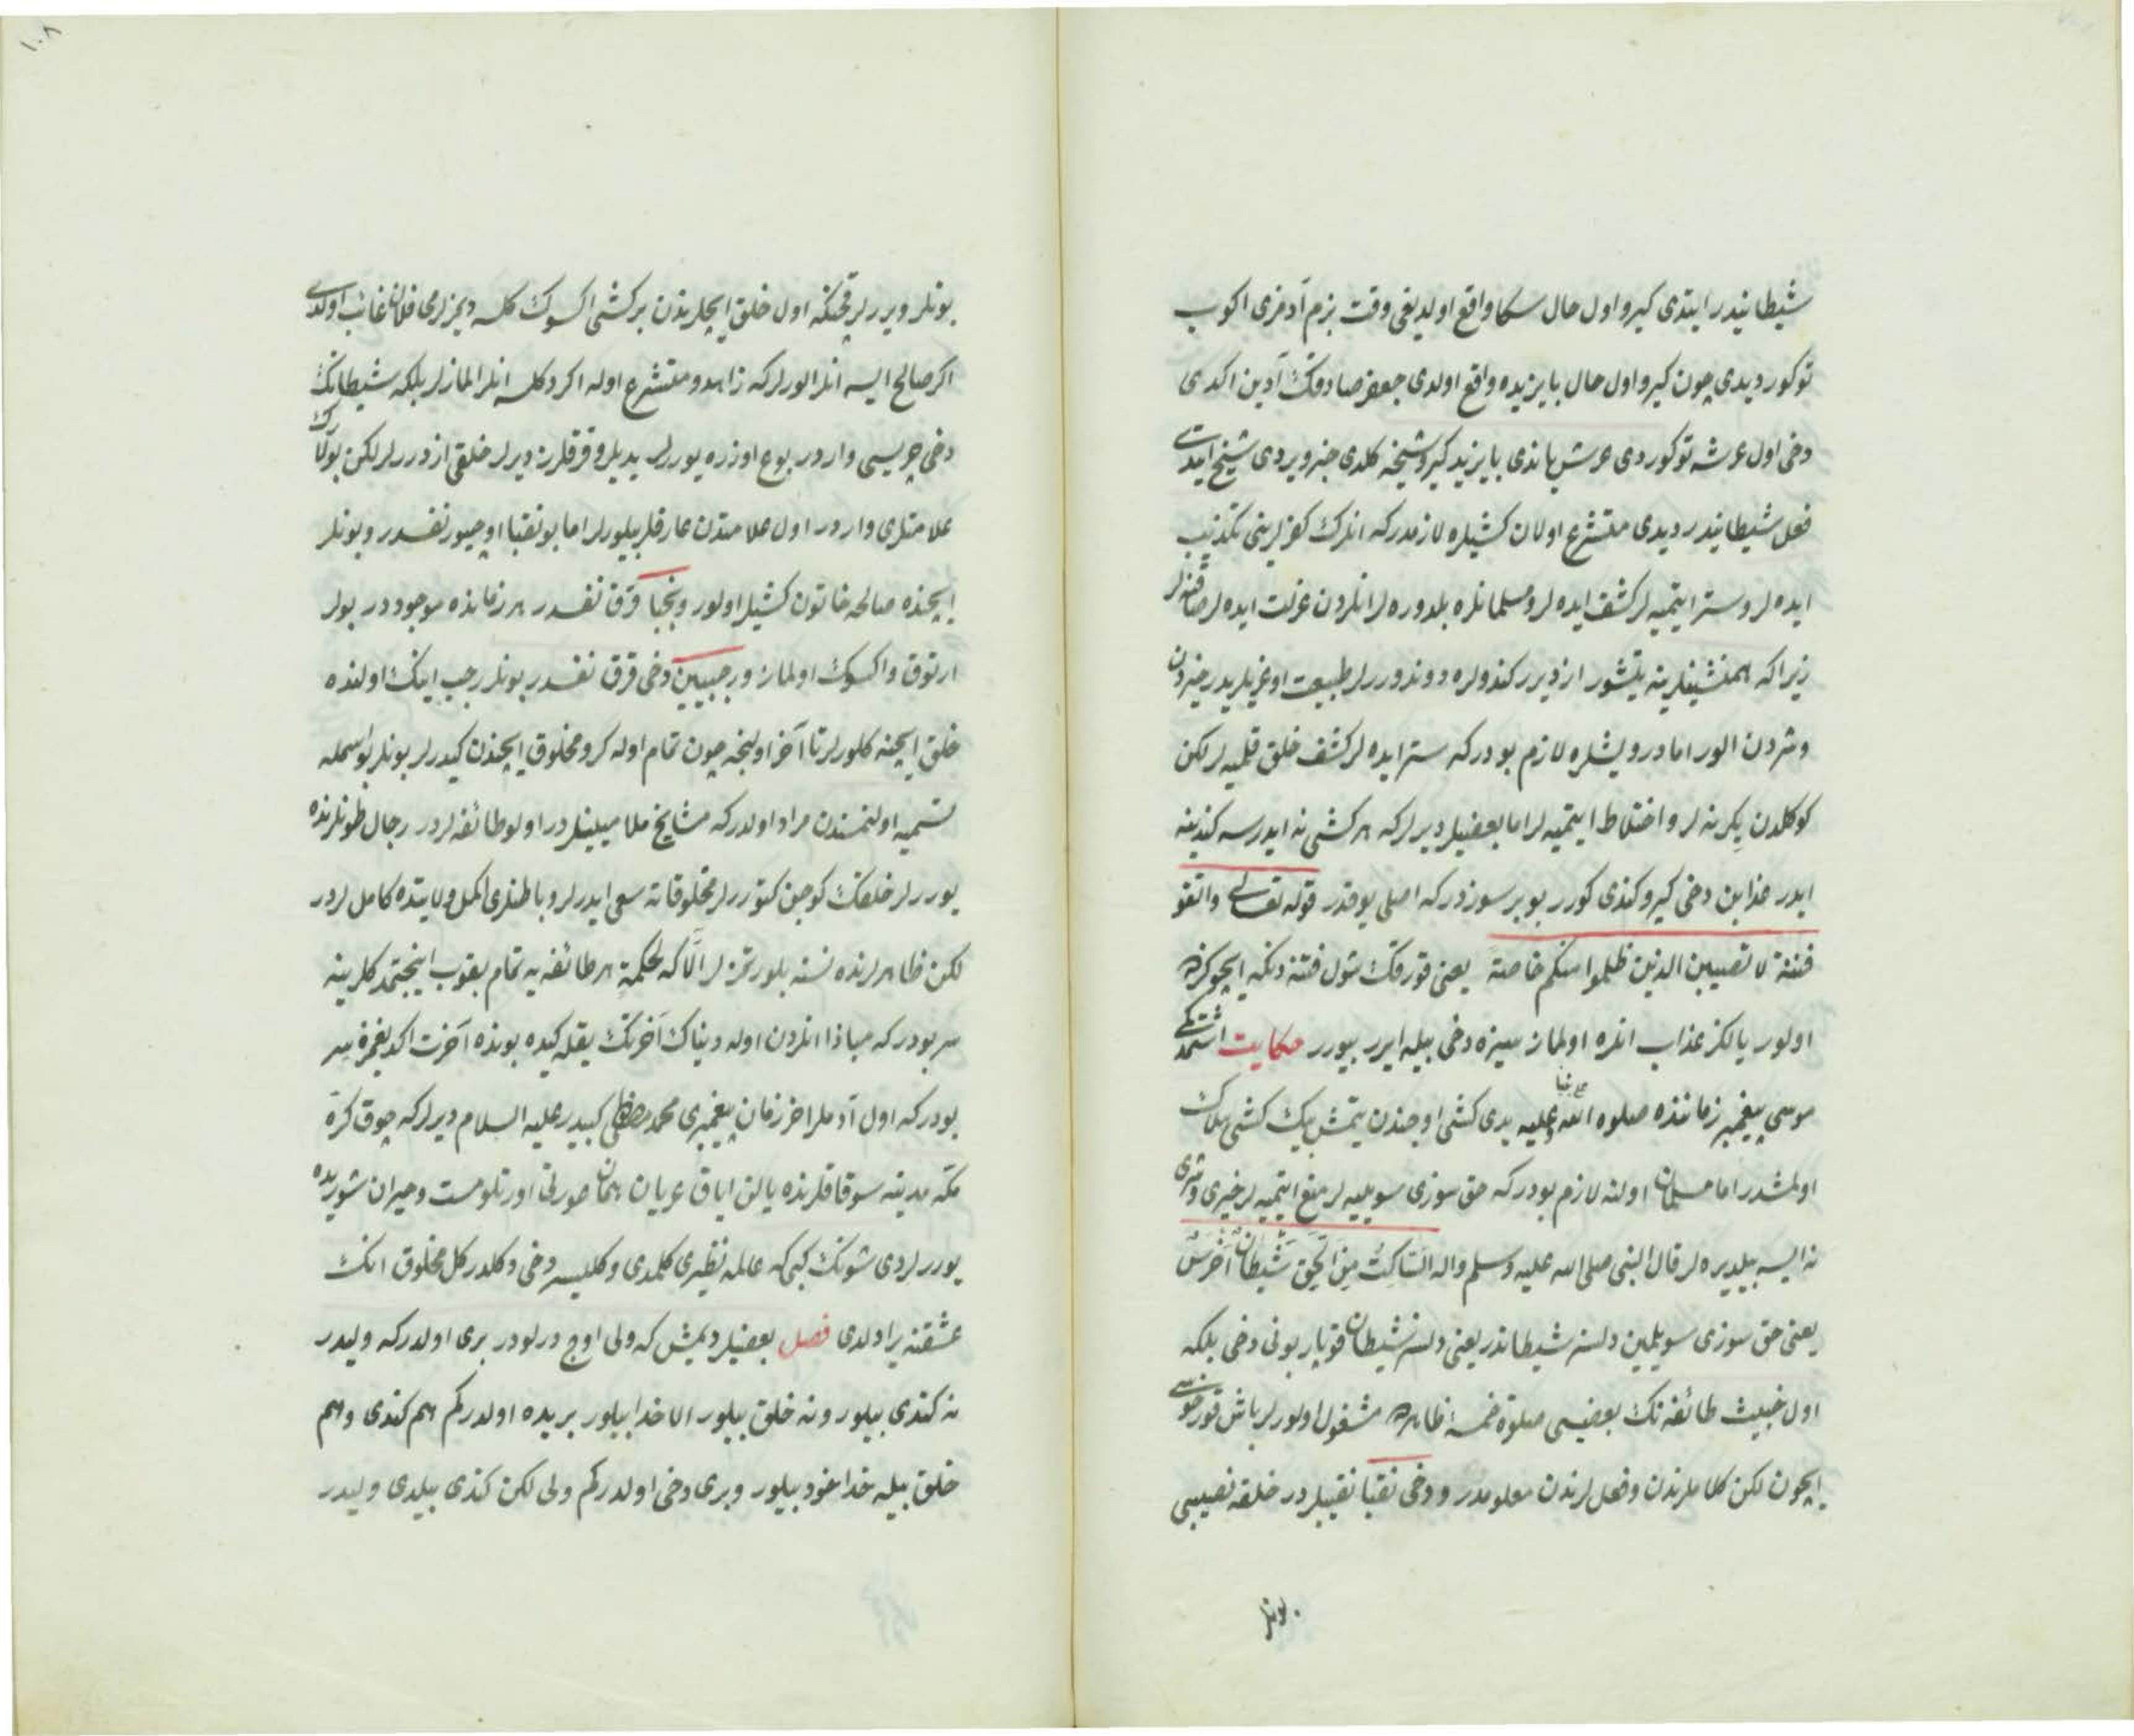 شیطانیدر ایتدی کیرو اول حال سکا واقع اولدیغی وقت بزم آدمزی اکوب
توکور دیدی چون کیرو اول حال بایزیده واقع اولدی جعفر صادقك آدین اکدی
دخی اول عرشه توکوردی عرش یاندی بایزید کیرو شیخه کلدی خبر ویردی شیخ ایتدی
فعل شیطانیدر دیدی متشرع اولان کشیلره لازمدرکه انلرك کوزلرینی تکذیب
ایده لر وستر ایتمیه لر کشف ایده لر ومسلمانلره بلدوره لر انلردن عزلت ایده لر صاقنه لر
زیراکه همنشینلرینه یتشور ازدیرر کندولره دوندورر لر طبیعت اوغریلریدر خیردن
وشردن الور اما درویشلره لازم بودرکه ستر ایده لر کشف خلق قلمیه لر لکن
کوکلدن یکرنه لر واختلاط ایتمیه لر اما بعضیلر دیرلر که هر کشی نه ایدرسه کندینه
ایدر عذابن دخی کیرو کندی کورر بو بر سوزدرکه اصلی یوقدر قوله تعالی واتقو
فتنة لا تصیبن الذین ظلموا منکم خاصة یعنی قورقك شول فتنه دنکه ایچوکزده
اولور یالکز عذاب انلره اولماز سیزه دخی بیله ایرر بیورر حکایت اشتمدکمی
موسی پیغمبر زماننده صلوه الله علی نبینا وعلیه یدی کشی اوجندن یتمش بیك کشی هلاك
اولمشدر اما مسلمان اولنه لازم بودرکه حق سوزی سویلیه لر منع ایتمیه لر خیری وشری
نه ایسه بیلدیره لر قال النبی صلی الله علیه وسلم واله السَّاکِتُ مِنَ الحَقِّ شَیْطَانٌ اَخْرَسُ
یعنی حق سوزی سویلمین دلسز شیطاندر یعنی دلسز شیطان قوپار بونی دخی بلکه
اول خبیث طائفه نك بعضیسی صلوة خمسه ظاهره مشغول اولورلر باش قورخوسی
ایچون لکن کلاملرندن وفعللرندن معلومدر ودخی نقبا نقیبلردر خلقه نصیبی
بونلر
۱۰۸
بونلر ویررلر قچنکه اول خلق ایچلرندن بر کشی اکسوك کلسه دیمزلرمی فلان غائب اولدی
اکر صالح ایسه انلر الورلر که زاهد ومتشرع اوله اکر دکلسه انلر المازلر بلکه شیطانك
دخی چریسی واردر بو ع اوزره یوررلر یدیلر وقرقلرز دیرلر خلقی ازدررلر لکن بونلارك
علامتلری واردر اول علامتدن عارفلر بیلورلر اما بو نقبا اوچیوز نفسدر وبونلر
ایچنده صالحه خاتون کشیلر اولور ونجبا قرق نفسدر هر زمانده موجوددر بولر
ارتوق واکسوك اولماز ورجبیین دخی قرق نفسدر بونلر رجب اینك اولنده
خلق ایچنه کلورلر تا آخر اولنجه چون تمام اوله کرو مخلوق ایچندن کیدرلر بونلر بو اسمله
تسمیه اولنمسندن مراد اولدرکه مشایخ ملامیلیلدر اولو طائفه لردر رجال طونلرنده
یوررلر خلقك کوجن کتوررلر مخلوقاته سعی ایدرلر وباطنلری اکمل ولایتده کاملردر
لکن ظاهرلرنده نسنه بلورتمزلر الّا که لحکمةٍ هر طائفه یه تمام یقوب اینجتمدکلرینه
سر بودرکه مباذا انلردن اوله دنیاك آخرتك یقله کیده بونده آخرت اکدیغمز سر
بودرکه اول آدملر اخر زمان پیغمبری محمد مصطفی کبیدر علیه السلام دیرلرکه چوق کرة
مکه مدینه سوقاقلرنده یالن ایاق عریان همان صورتی اورتلو مست وحیران شوریده
یوررلردی شونك کبی که عالمه نظیری کلمدی وکلیسر دخی دکلدر کل مخلوق انك
عشقنه یرادلدی فصل بعضیلر دیمش که ولی اوچ درلودر بری اولدرکه ولیدر
نه کندی بیلور ونه خلق بیلور الا خدا بیلور بریده اولدرکم هم کندی وهم
خلق بیله خدا خود بیلور وبری دخی اولدرکم ولی لکن کندی بیلدی ولیدر